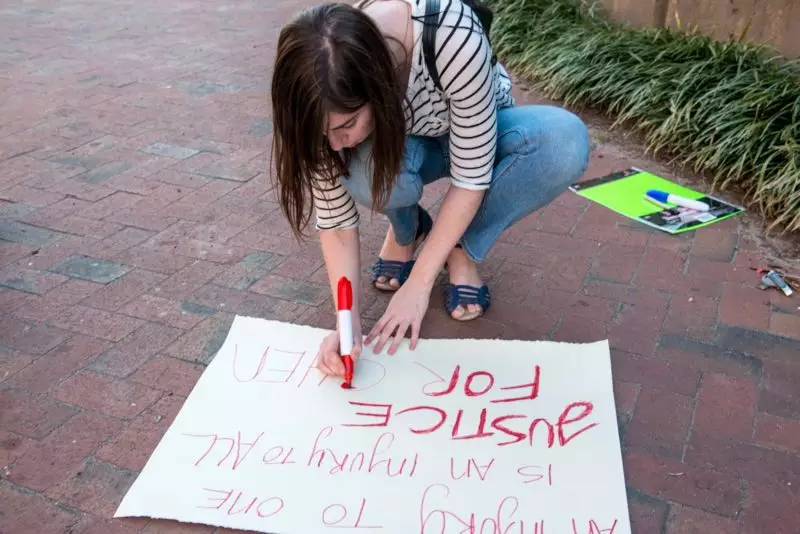 AN INJURY TO ONE
IS AN INJURY TO ALL
JUSTICE
FOR CHEN